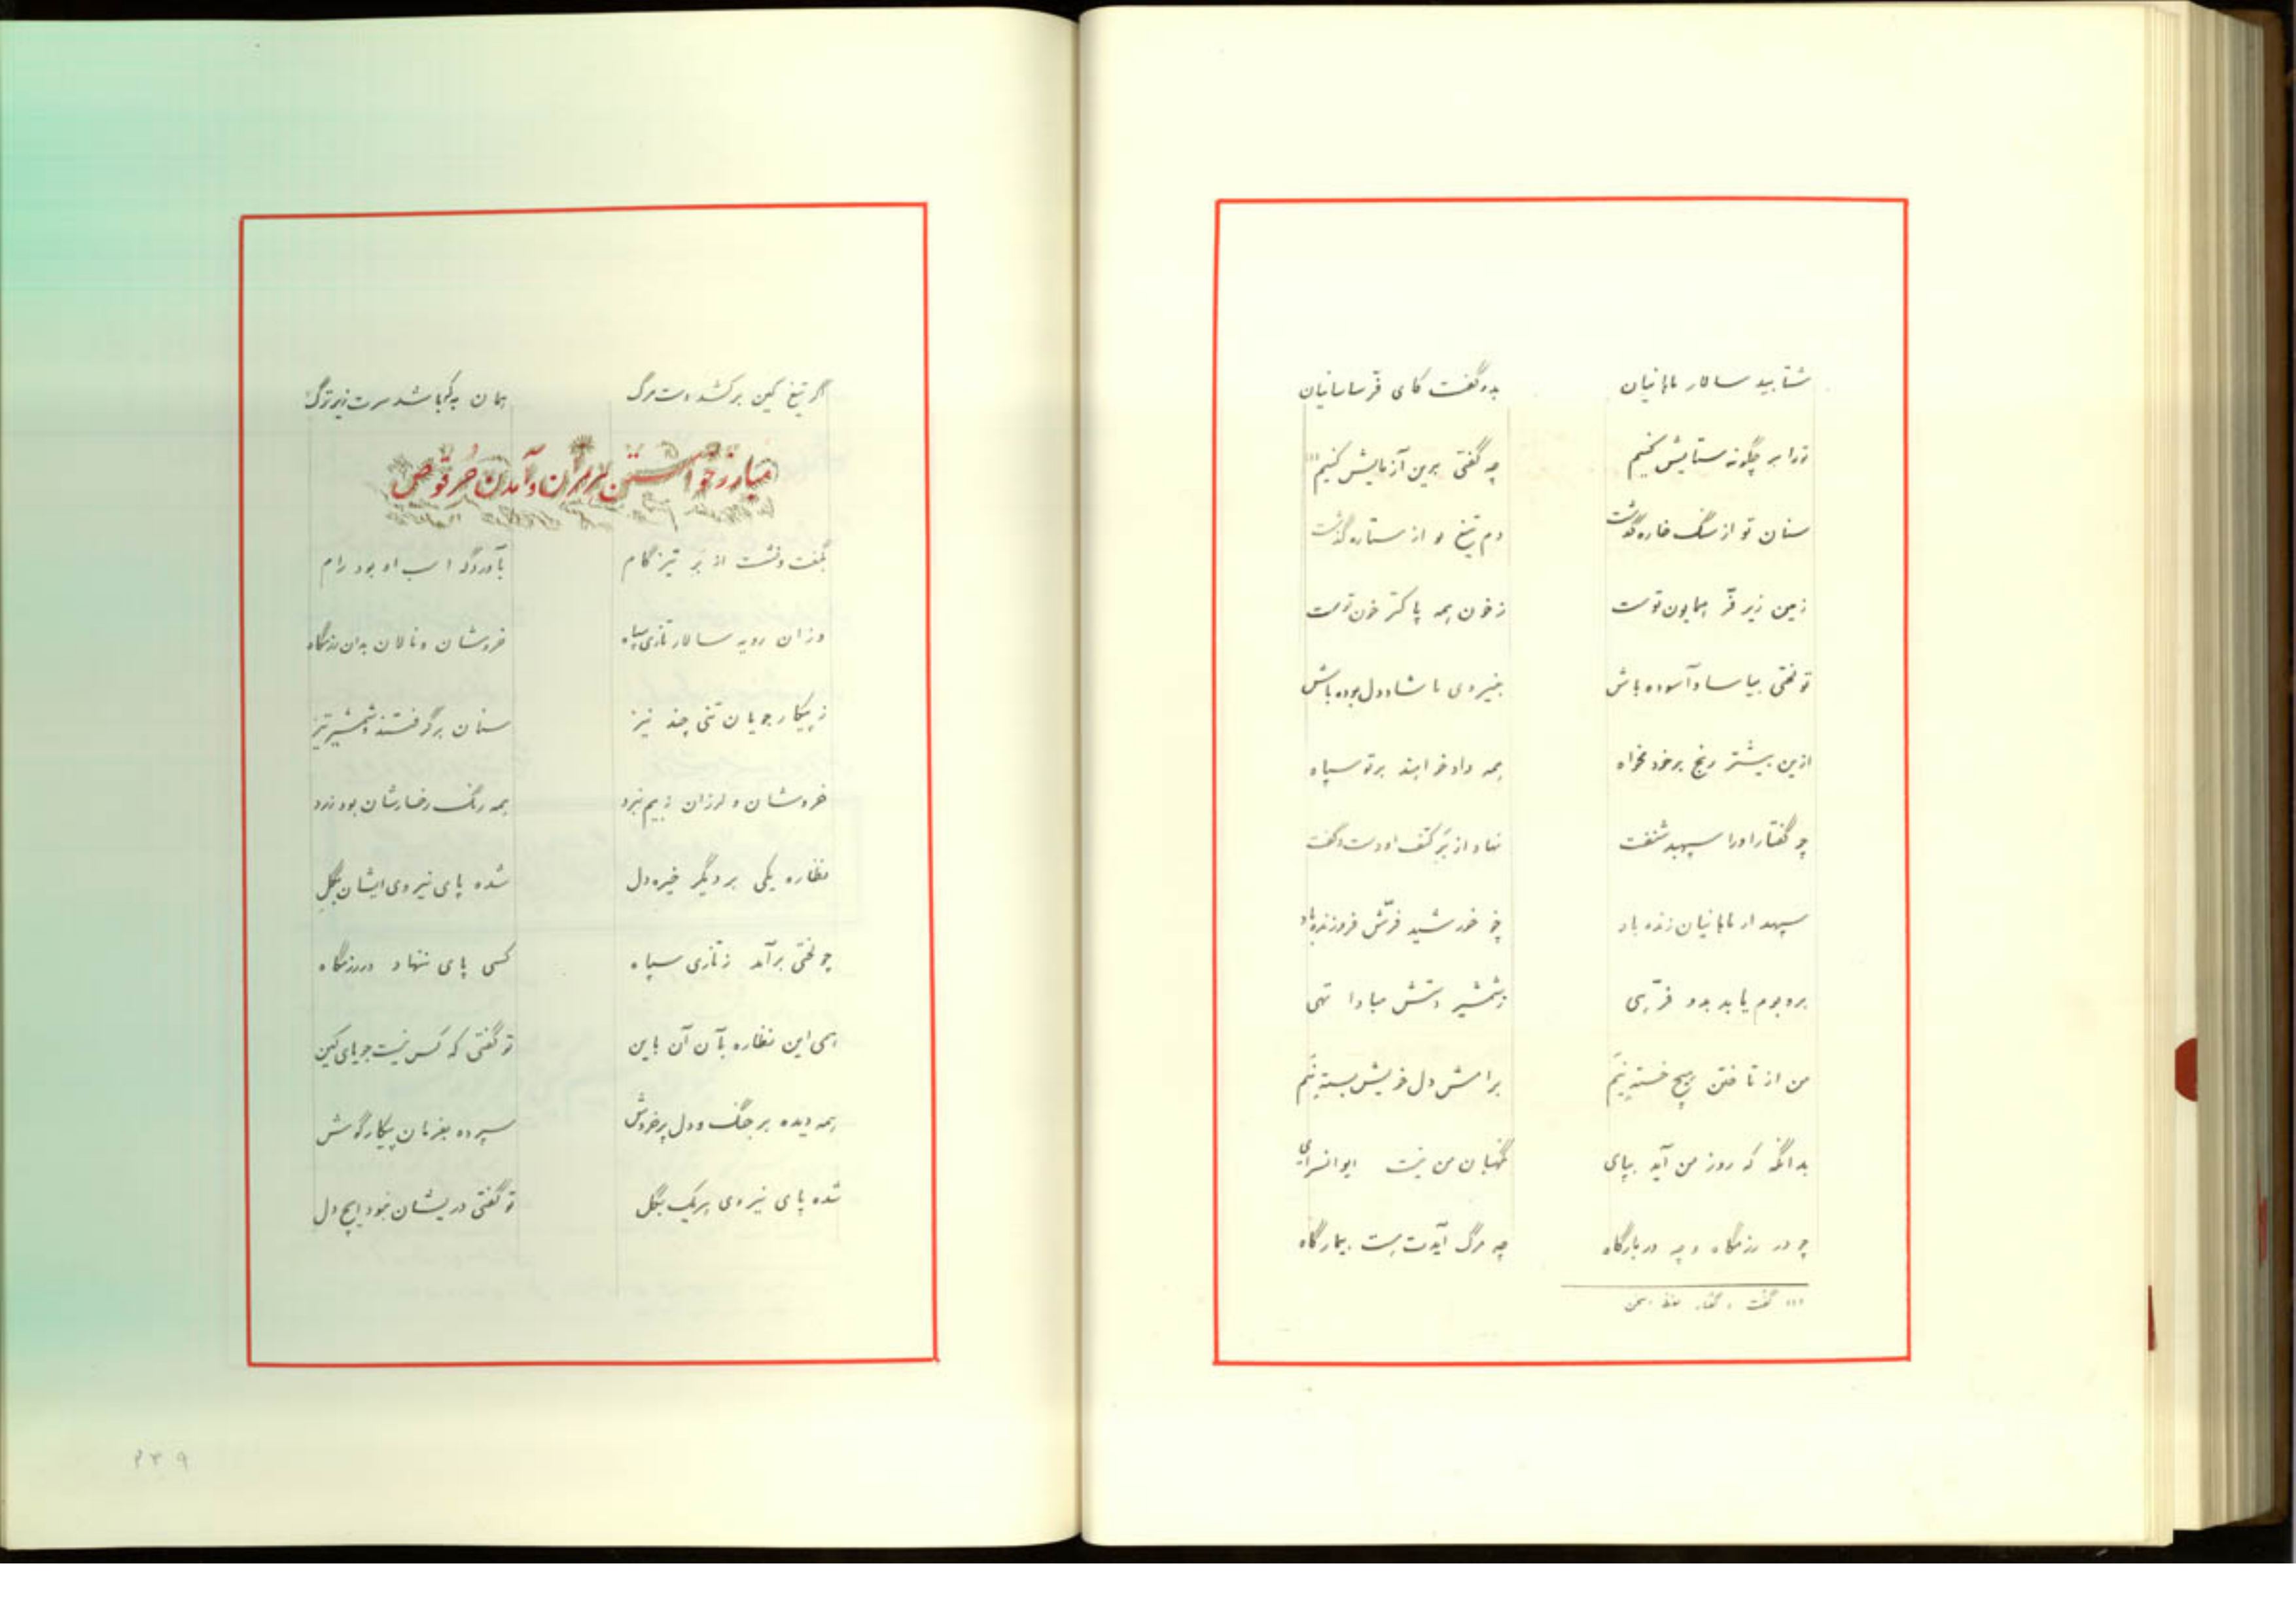 شتابید سالار ماهانیان بدو گفت کای فرّ ساسانیان
ترا بر چگونه ستایش کنیم چه گفتی برین آزمایش کنیم (۱)
سنان تو از سنگ خاره گذشت دم تیغ تو از ستاره گذشت
زمین زیر فرّ همایون توست ز خون همه پاکتر خون توست
تو لختی بیاسا و آسوده باش بخیره‌ی ما شاد دل بوده باش
ازین بیشتر رنج بر خود مخواه همه داد خواهند بر تو سپاه
چو گفتار او را سپهبد شنفت نهاد از بَرِ کتف او دست و گفت
سپهدار ماهانیان زنده باد چو خورشید فرّش فروزنده باد
بر و بوم یابد بدو فرّهی ز شمشیر دستش مبادا تهی
من از تاختن هیچ خسته نیَم برامش دل خویش بسته نیَم
بدانگه که روز من آید بپای نگهبان من نیست ایوانسرای
چو در رزمگاه و چه در بارگاه چه مرگ آیدت هست بیمارگاه
(۱) گفت و گفتار لفظ سخن
اگر تیغ کین برکشد دست مرگ همان به که باشد سرت زیر ترگ
مبارز خواستن لرمران و آمدن حُرقُوص
بگفت و نشست از بَرِ تیزگام بآوردگه اسب او بود رام
وزان رویه سالار تازی سپاه خروشان و نالان بدان رزمگاه
ز پیکار جویان تنی چند نیز سنان برگرفتند و شمشیر تیز
خروشان و لرزان ز بیم نبرد همه رنگ رخسارشان بود زرد
نظاره یکی بر دیگر خیره دل شده پای نیروی ایشان بگل
چو لختی برآمد ز تازی سپاه کسی پای ننهاد در رزمگاه
همی این نظاره بآن آن باین تو گفتی که کس نیست جویای کین
همه دیده بر جنگ و دل پر خروش سپرده بفرمان پیکار گوش
شده پای نیروی هریک بگل تو گفتی در یشان نبود ایچ دل